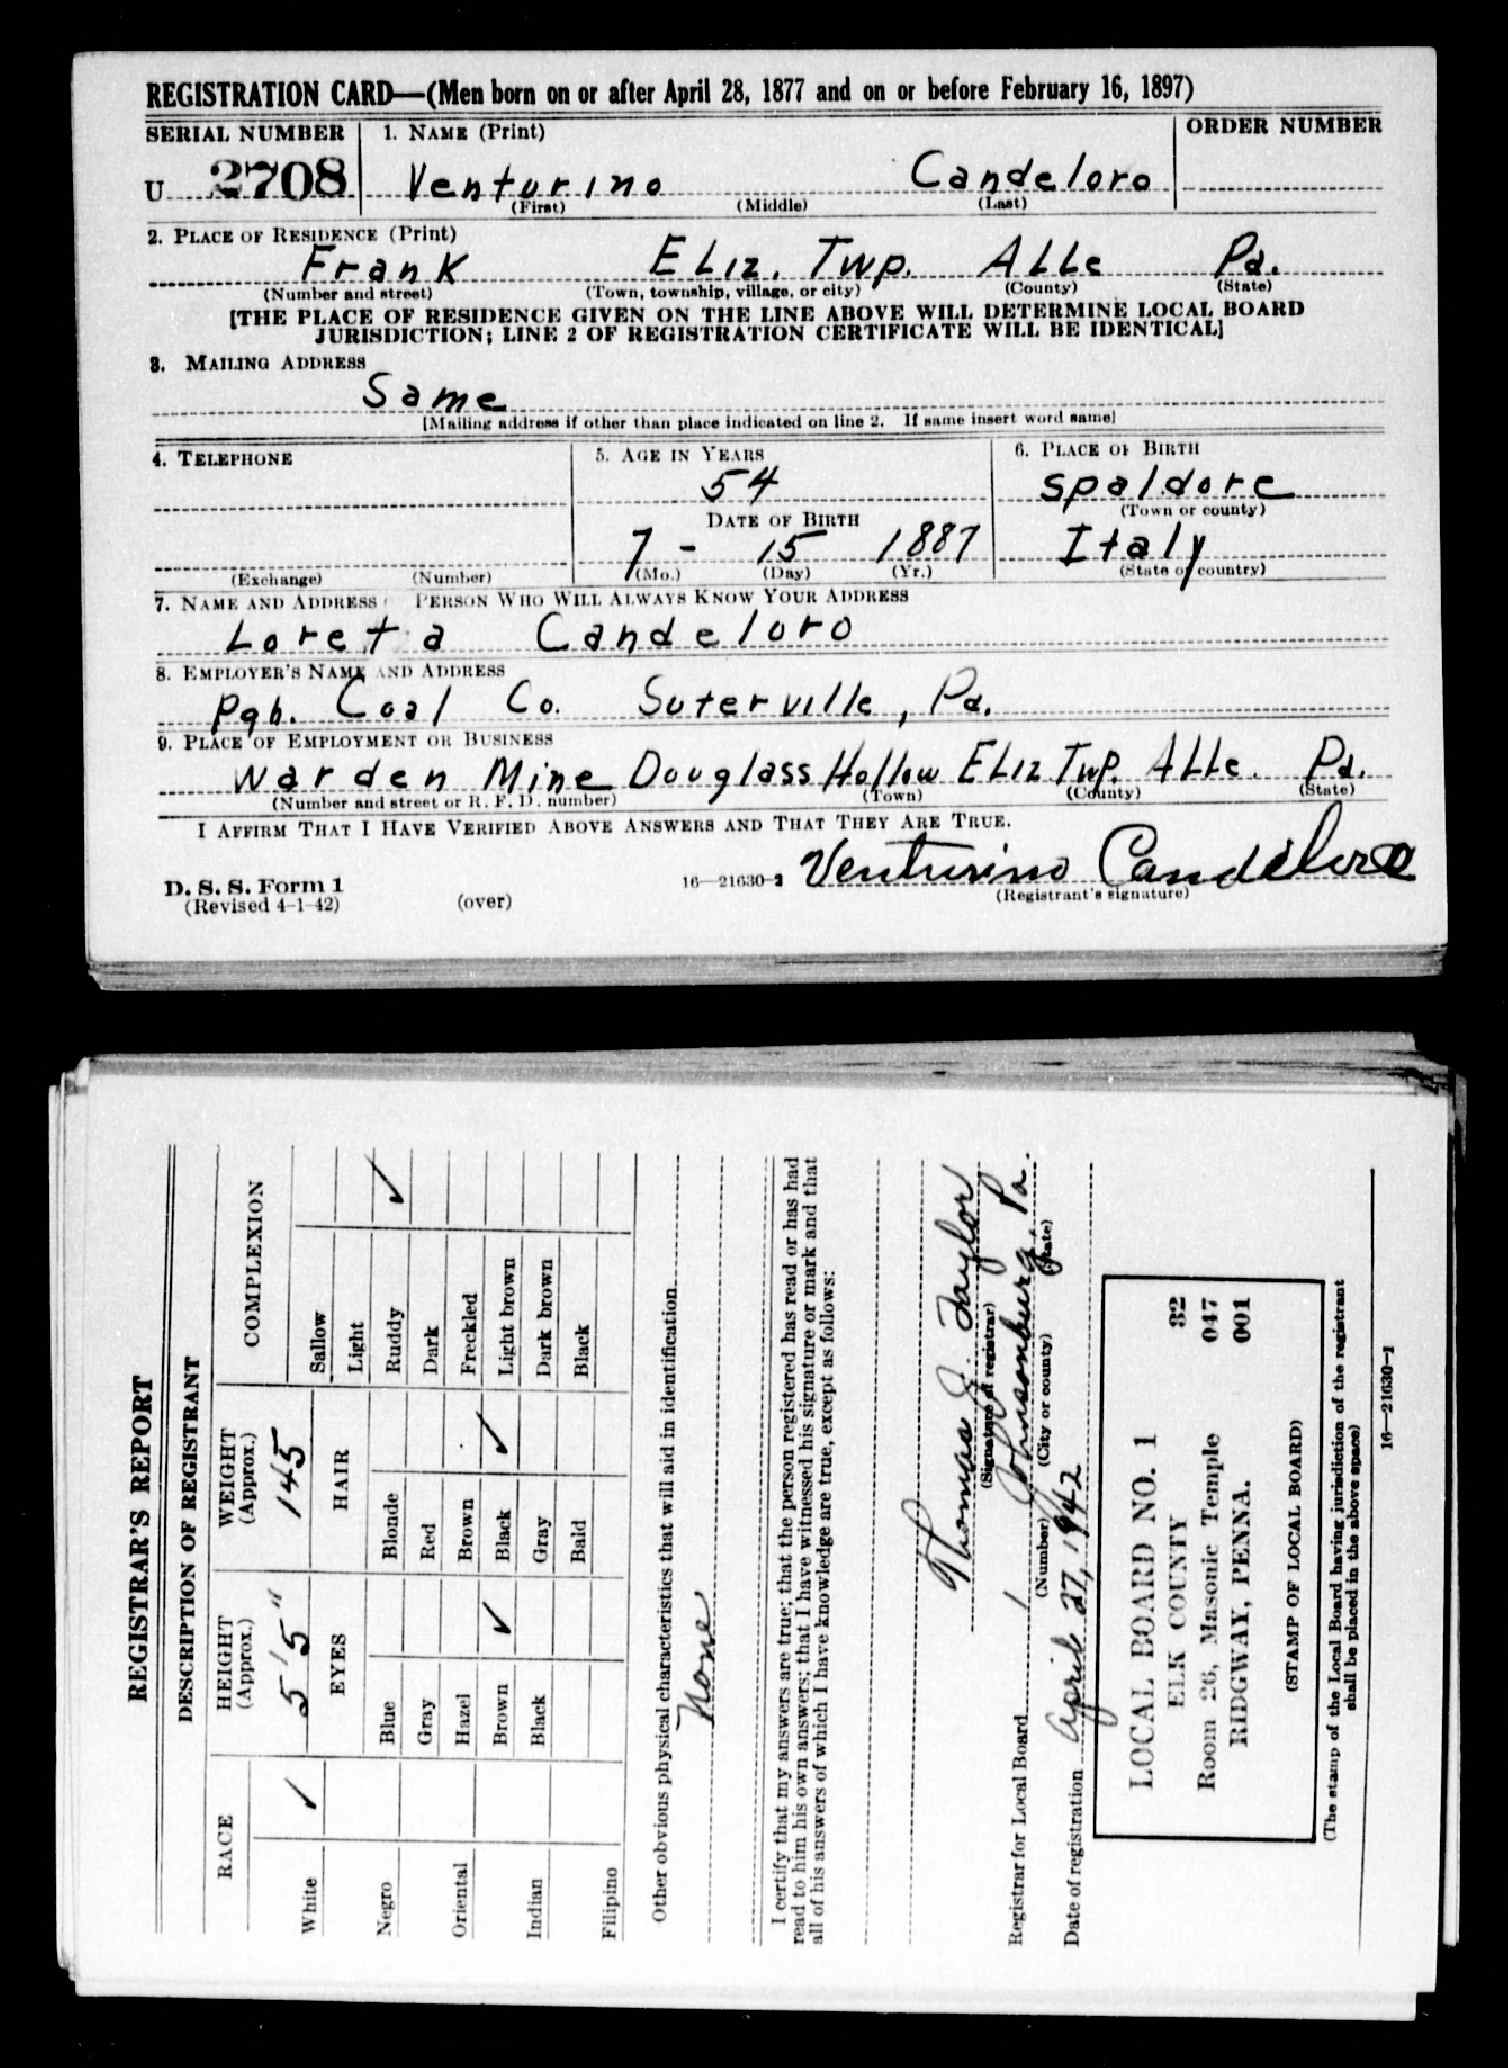 REGISTRATION CARD—(Men born on or after April 28, 1877 and on or before February 16, 1897)
SERIAL NUMBER 1. NAME (Print) ORDER NUMBER
U 2708 Venturino Candeloro
(First) (Middle) (Last)
2. PLACE OF RESIDENCE (Print)
Frank ELIZ. Twp. ALLe Pa.
(Number and street) (Town, township, village, or city) (County) (State)
[THE PLACE OF RESIDENCE GIVEN ON THE LINE ABOVE WILL DETERMINE LOCAL BOARD
JURISDICTION; LINE 2 OF REGISTRATION CERTIFICATE WILL BE IDENTICAL]
3. MAILING ADDRESS
Same
[Mailing address if other than place indicated on line 2. If same insert word same]
4. TELEPHONE 5. AGE IN YEARS 6. PLACE OF BIRTH
54 Spaldore
DATE OF BIRTH (Town or county)
7 - 15 1887 Italy
(Exchange) (Number) (Mo.) (Day) (Yr.) (State or country)
7. NAME AND ADDRESS PERSON WHO WILL ALWAYS KNOW YOUR ADDRESS
Loreta Candeloro
8. EMPLOYER'S NAME AND ADDRESS
Pgh. Coal Co. Suterville, Pa.
9. PLACE OF EMPLOYMENT OR BUSINESS
Warden Mine Douglass Hollow ELIZ Twp. ALLe. Pa.
(Number and street or R. F. D. number) (Town) (County) (State)
I AFFIRM THAT I HAVE VERIFIED ABOVE ANSWERS AND THAT THEY ARE TRUE.
D. S. S. Form 1 16—21630-2 Venturino Candeloro
(Revised 4-1-42) (over) (Registrant's signature)
REGISTRAR'S REPORT
DESCRIPTION OF REGISTRANT
RACE HEIGHT (Approx.) WEIGHT (Approx.) COMPLEXION
White ✓ 5'5" 145 Sallow
EYES HAIR Light
Negro Blue Blonde Ruddy ✓
Gray Red Dark
Oriental Hazel Brown Freckled
Brown ✓ Black ✓ Light brown
Indian Black Gray Dark brown
Bald Black
Filipino
Other obvious physical characteristics that will aid in identification
None
I certify that my answers are true; that the person registered has read or has had
read to him his own answers; that I have witnessed his signature or mark and that
all of his answers of which I have knowledge are true, except as follows:
Thomas J. Taylor
(Signature of registrar)
Registrar for Local Board 1 Johnsonburg, Pa.
(Number) (City or county) (State)
Date of registration April 27, 1942
LOCAL BOARD NO. 1
ELK COUNTY 32
Room 26, Masonic Temple 047
RIDGWAY, PENNA. 001
(STAMP OF LOCAL BOARD)
(The stamp of the Local Board having jurisdiction of the registrant
shall be placed in the above space)
16—21630-1